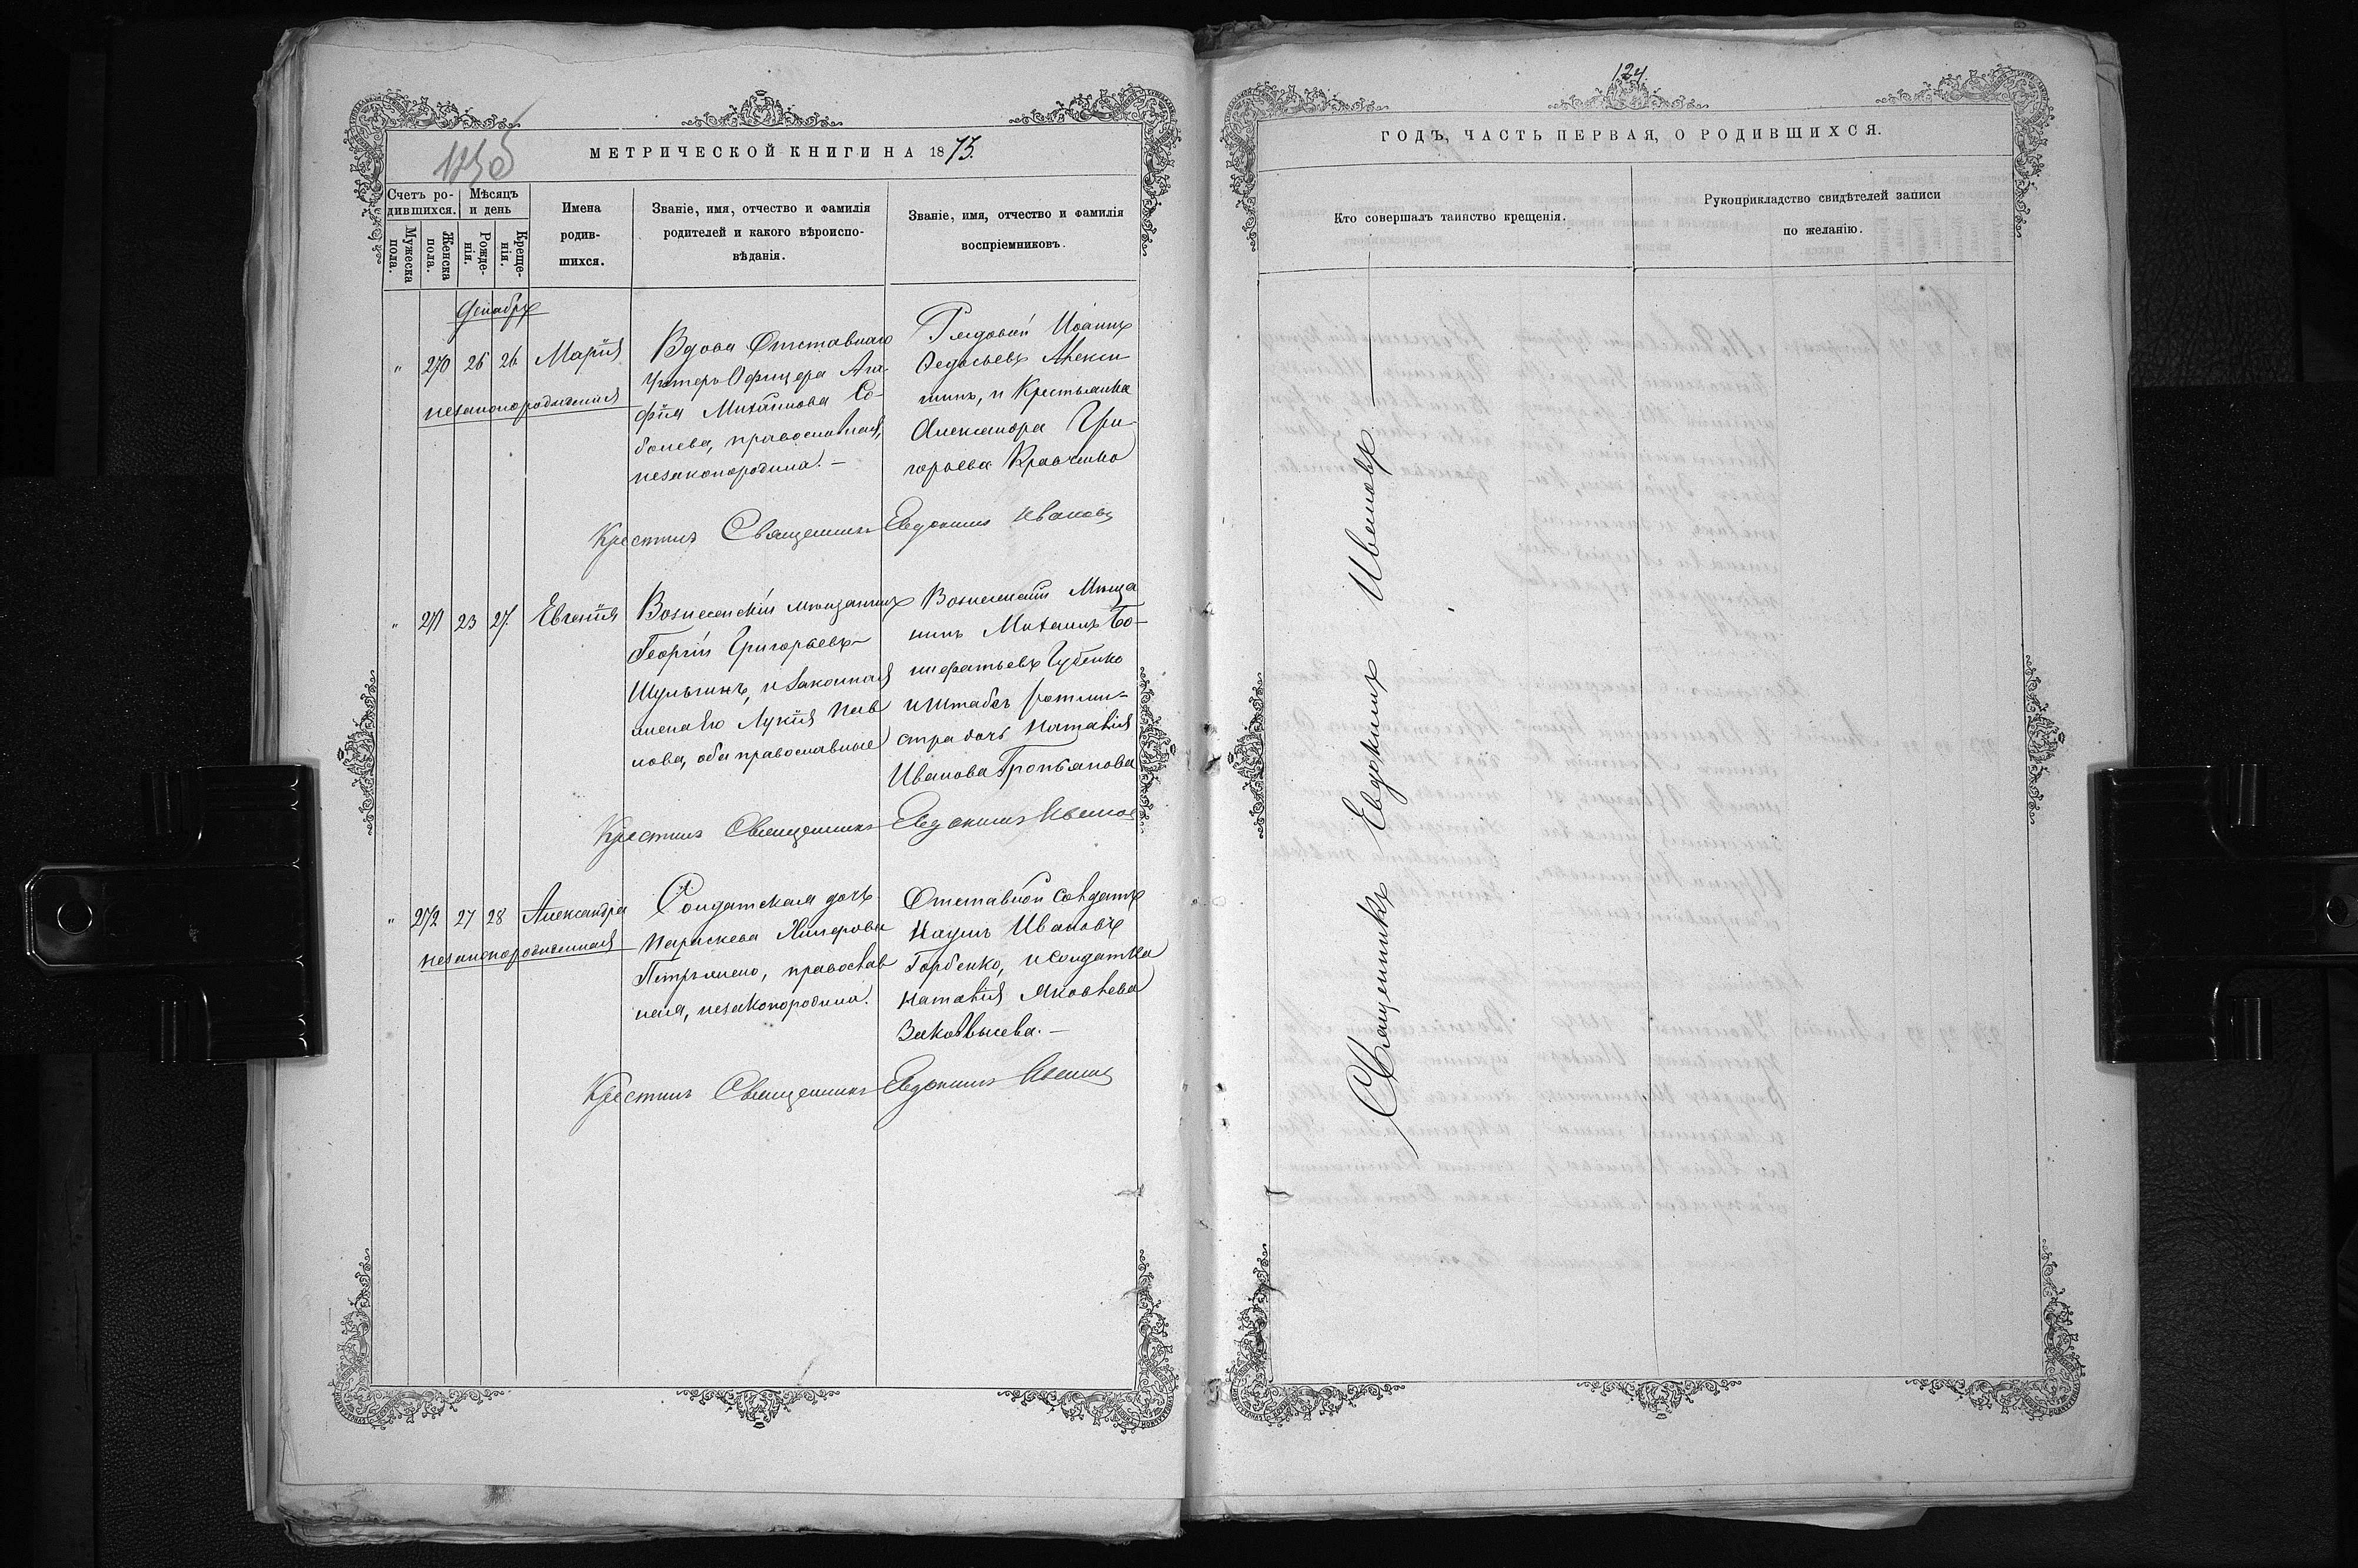 МЕТРИЧЕСКОЙ КНИГИ НА 1875.
Счетъ родившихся.
Мужеска пола.
Женска пола.
Мѣсяцъ и день
Рожденія.
Крещенія.
Имена родившихся.
Званіе, имя, отчество и фамилія родителей и какого вѣроисповѣданія.
Званіе, имя, отчество и фамилія воспріемниковъ.
Декабрь
" 270 26 26 Марія
незаконорожденная
Вдова Отставнаго
Унтеръ Офицера Ага-
фія Михайлова Со-
болева, православная,
незаконородила. —
Рядовой Иоаннъ
Федосьевъ Алекси-
шинъ, и Крестьянка
Александра Гри-
горьева Кравченко
Крестилъ Священникъ Евдокимъ Ивановъ
" 271 23 27. Евгенія
Вознесенскій мѣщанинъ
Георгій Григорьевъ
Шульгинъ, и законная
жена его Лукія Пав
лова, оба православные
Вознесенскій Мѣща
нинъ Михаилъ Бо-
нифатьевъ Губенко
и Штабсъ ротми-
стра дочь Наталія
Иванова
Крестилъ Священникъ Евдокимъ Ивановъ
" 272 27 28 Александра
незаконорожденная
Солдатская дочь
Параскева
православ
ная, незаконородила.
Отставной Солдатъ
Наумъ Ивановъ
Горбенко, и солдатка
Наталія Яковлева
Крестилъ Священникъ Евдокимъ Ивановъ
124.
ГОДЪ, ЧАСТЬ ПЕРВАЯ, О РОДИВШИХСЯ.
Кто совершалъ таинство крещенія.
Рукоприкладство свидѣтелей записи
по желанію.
Священникъ Евдокимъ Ивановъ